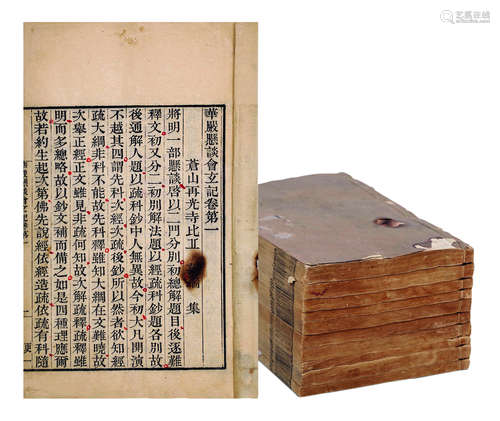 華嚴懸談會玄記卷第一
蒼山再光寺比丘 集
將明一部懸談啓以二門分別初總解題目後逐難
釋文初又分二初別解法題以經疏科鈔題各別故
後通解人題以疏科鈔中人無異故今初大凡開演
不越其四謂先科次經次疏後鈔所以然者欲知經
疏大綱非科不能故先科釋雖知大綱在文難曉故
次舉正經正文雖見非疏何知故次解疏釋疏雖
明而多總略故以鈔文補而備之如是四種理應爾
故若約生起次第佛先說經依經造疏依疏有科隨